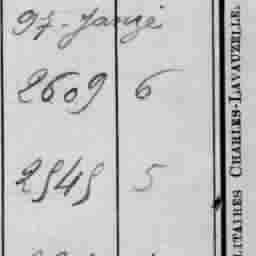 97 - Janzé
2609 6
2545 5
LITAIRES CHARLES-LAVAUZELLE.